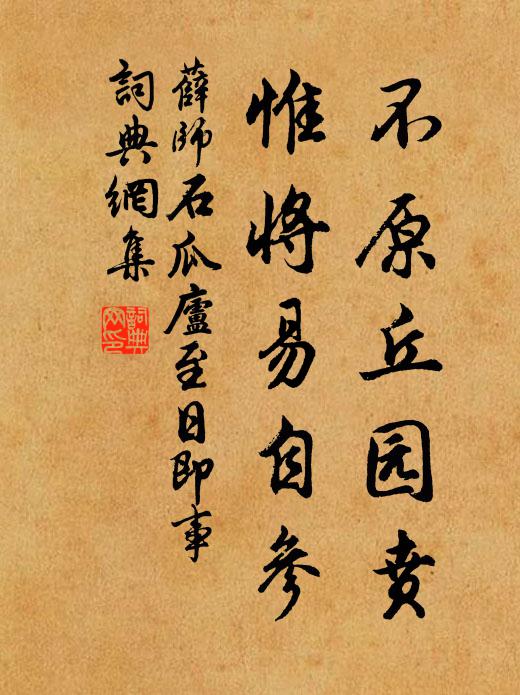 不原丘园贲
惟将易自参
薛师石瓜廬至日即事
詞典網集
詞典網印